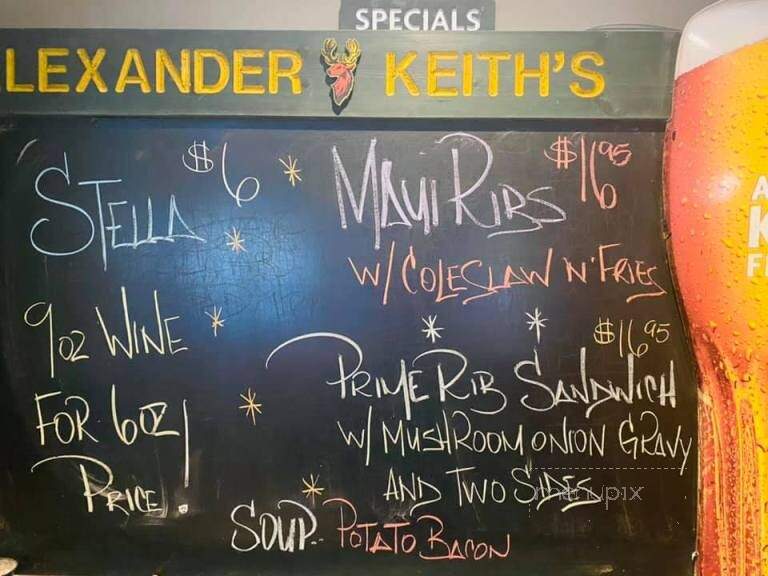 SPECIALS
LEXANDER KEITH'S
STELLA $6
9oz WINE
FOR 6oz
PRICE!
MAUI RIBS $16.95
W/ COLESLAW 'N' FRIES
$16.95
PRIME RIB SANDWICH
W/ MUSHROOM ONION GRAVY
AND TWO SIDES
SOUP.. POTATO BACON
menupix
A
K
F